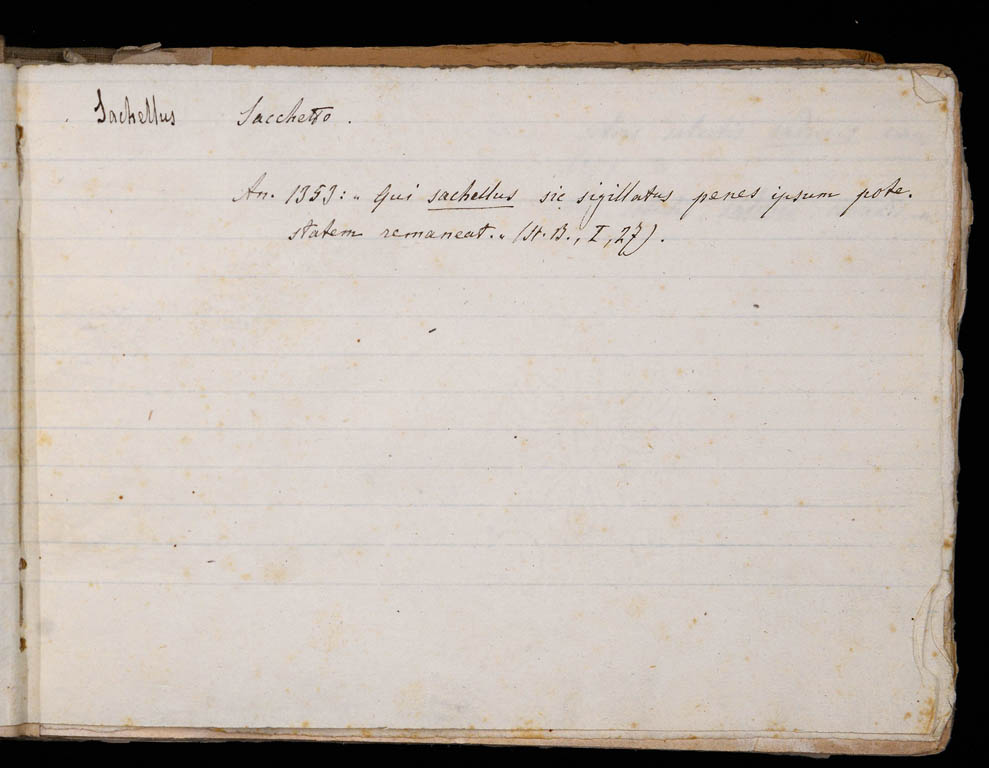 Sachellus Sacchetto.
An. 1353: „ Qui sachellus sic sigillatus penes ipsum pote-
statem remaneat. „ (St. B., I, 27).